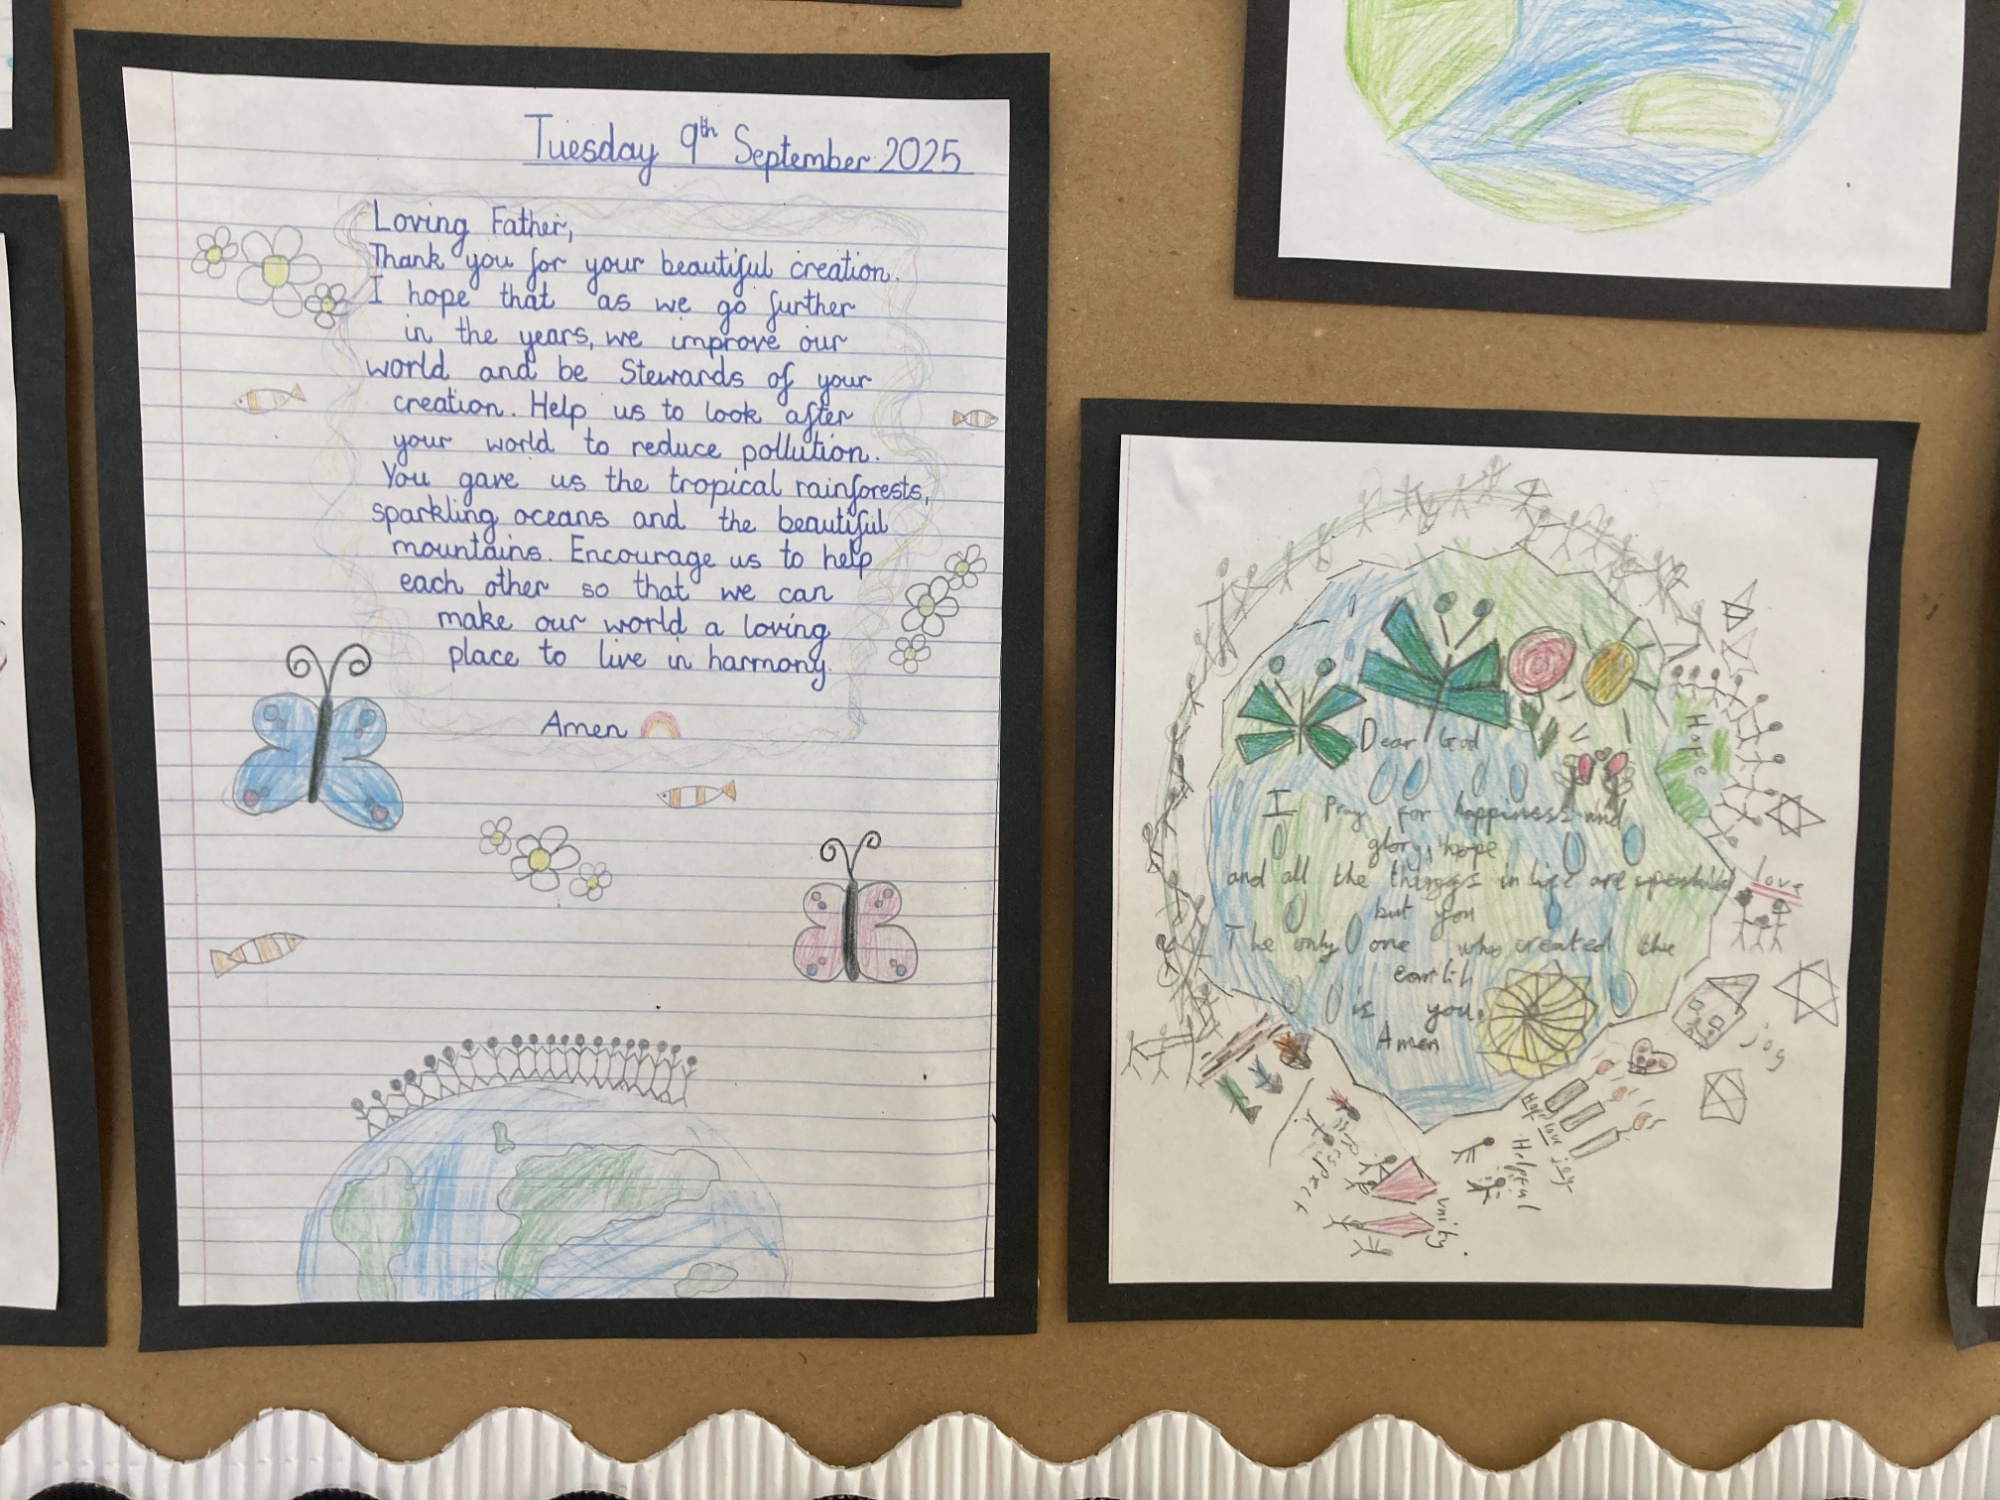 Tuesday 9th September 2025
Loving Father,
Thank you for your beautiful creation.
I hope that as we go further
in the years, we improve our
world and be Stewards of your
creation. Help us to look after
your world to reduce pollution.
You gave us the tropical rainforests,
sparkling oceans and the beautiful
mountains. Encourage us to help
each other so that we can
make our world a loving
place to live in harmony.
Amen
Dear God
I pray for happiness and
glory, hope
and all the thinggs in life are
but you
The only one who created the
earth
is you.
Amen
Hope
love
joy
Hope
love
joy
Helpful
unity.